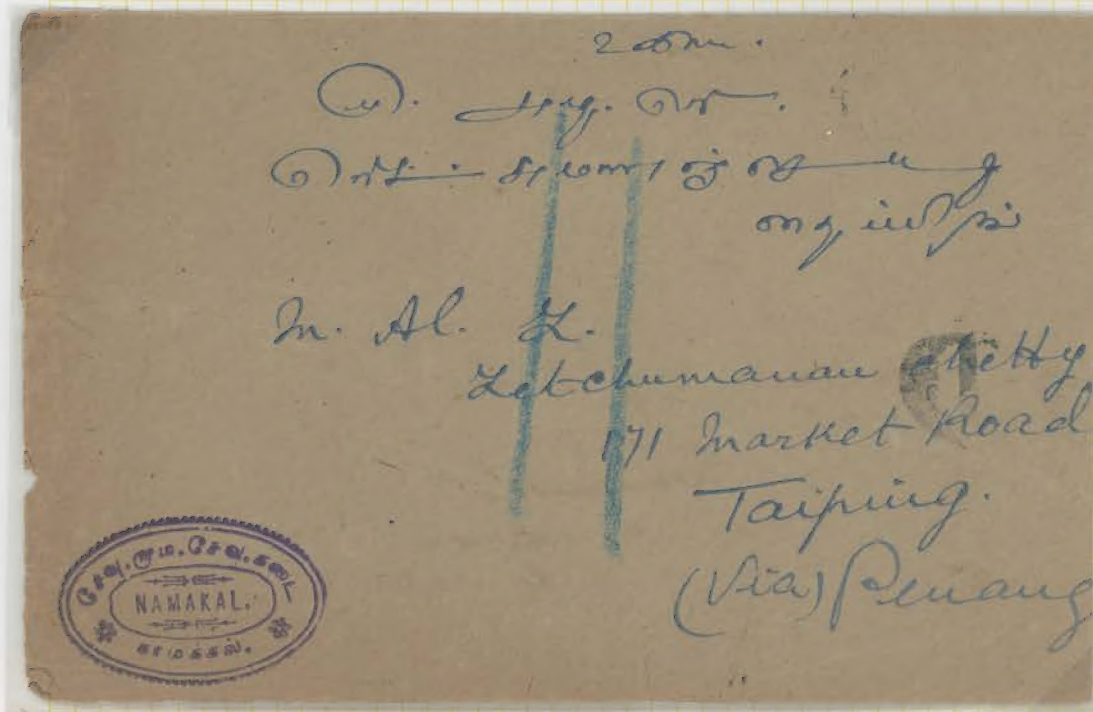 உ
லெட்சுமணஞ் செட்டி
தைப்பிங்
M. Al. L.
Letchumanan Chetty
171 Market Road
Taiping.
(Via) Penang
சேவு.மூம.சேவு.கடை
NAMAKAL.
நாமக்கல்.